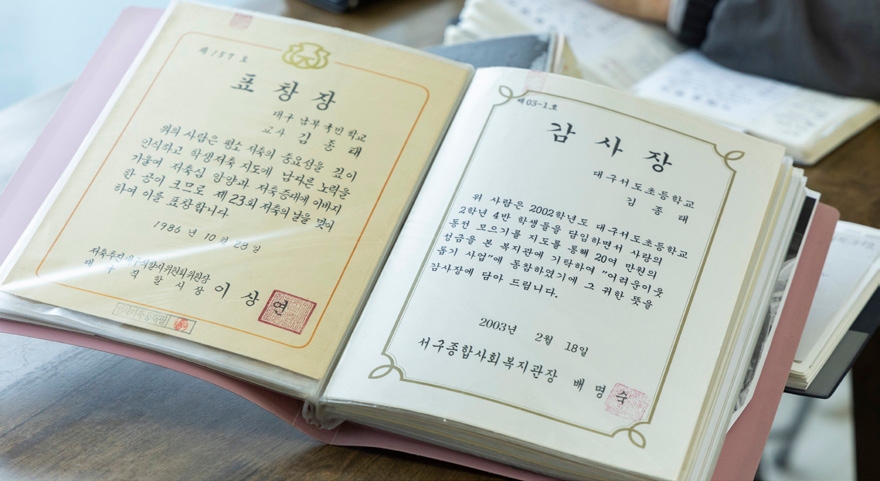 제 157 호
표 창 장
대구 남부 국민학교
교사 김 종 태
위의 사람은 평소 저축의 중요성을 깊이
인식하고 학생저축 지도에 남다른 노력을
기울여 저축심 앙양과 저축증대에 이바지
한 공이 크므로 제 23회 저축의 날을 맞이
하여 이를 표창합니다
1986 년 10 월 28 일
대 구 직 할 시 장 이 상 연
제 03-1 호
감 사 장
대구서도초등학교
김 종 태
위 사람은 2002학년도 대구서도초등학교
2학년 4반 학생들을 담임하면서 사랑의
동전 모으기를 지도를 통해 20여 만원의
성금을 본 복지관에 기탁하여 "어려운이웃
돕기 사업"에 동참하였기에 그 귀한 뜻을
감사장에 담아 드립니다.
2003년 2월 18일
서구종합사회복지관장 배 명 숙